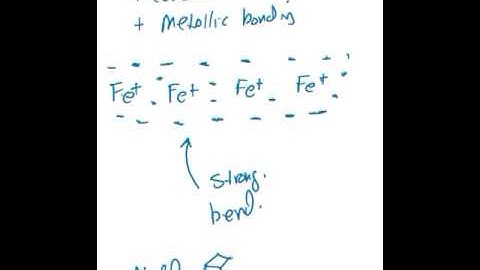 + Metallic bonding
Fe+ Fe+ Fe+ Fe+
strong.
bend.